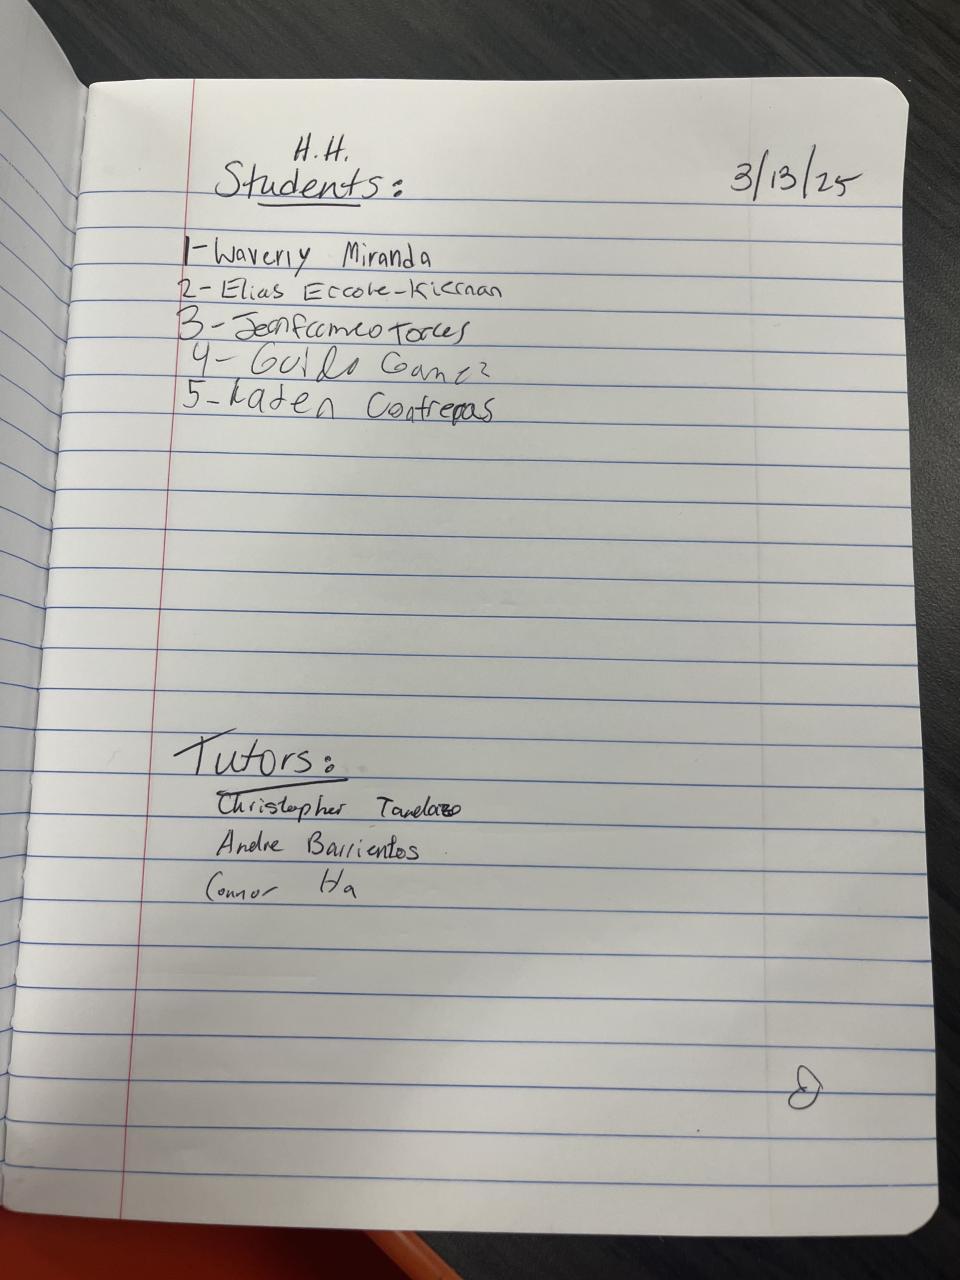 H.H.
Students:
3/13/25
1-Waverly Miranda
2-Elias Eccote-Kiernan
3-
4-Guido
5-Kaden Contreras
Tutors:
Christopher Tandazo
Andre Barrientos
Connor Ha